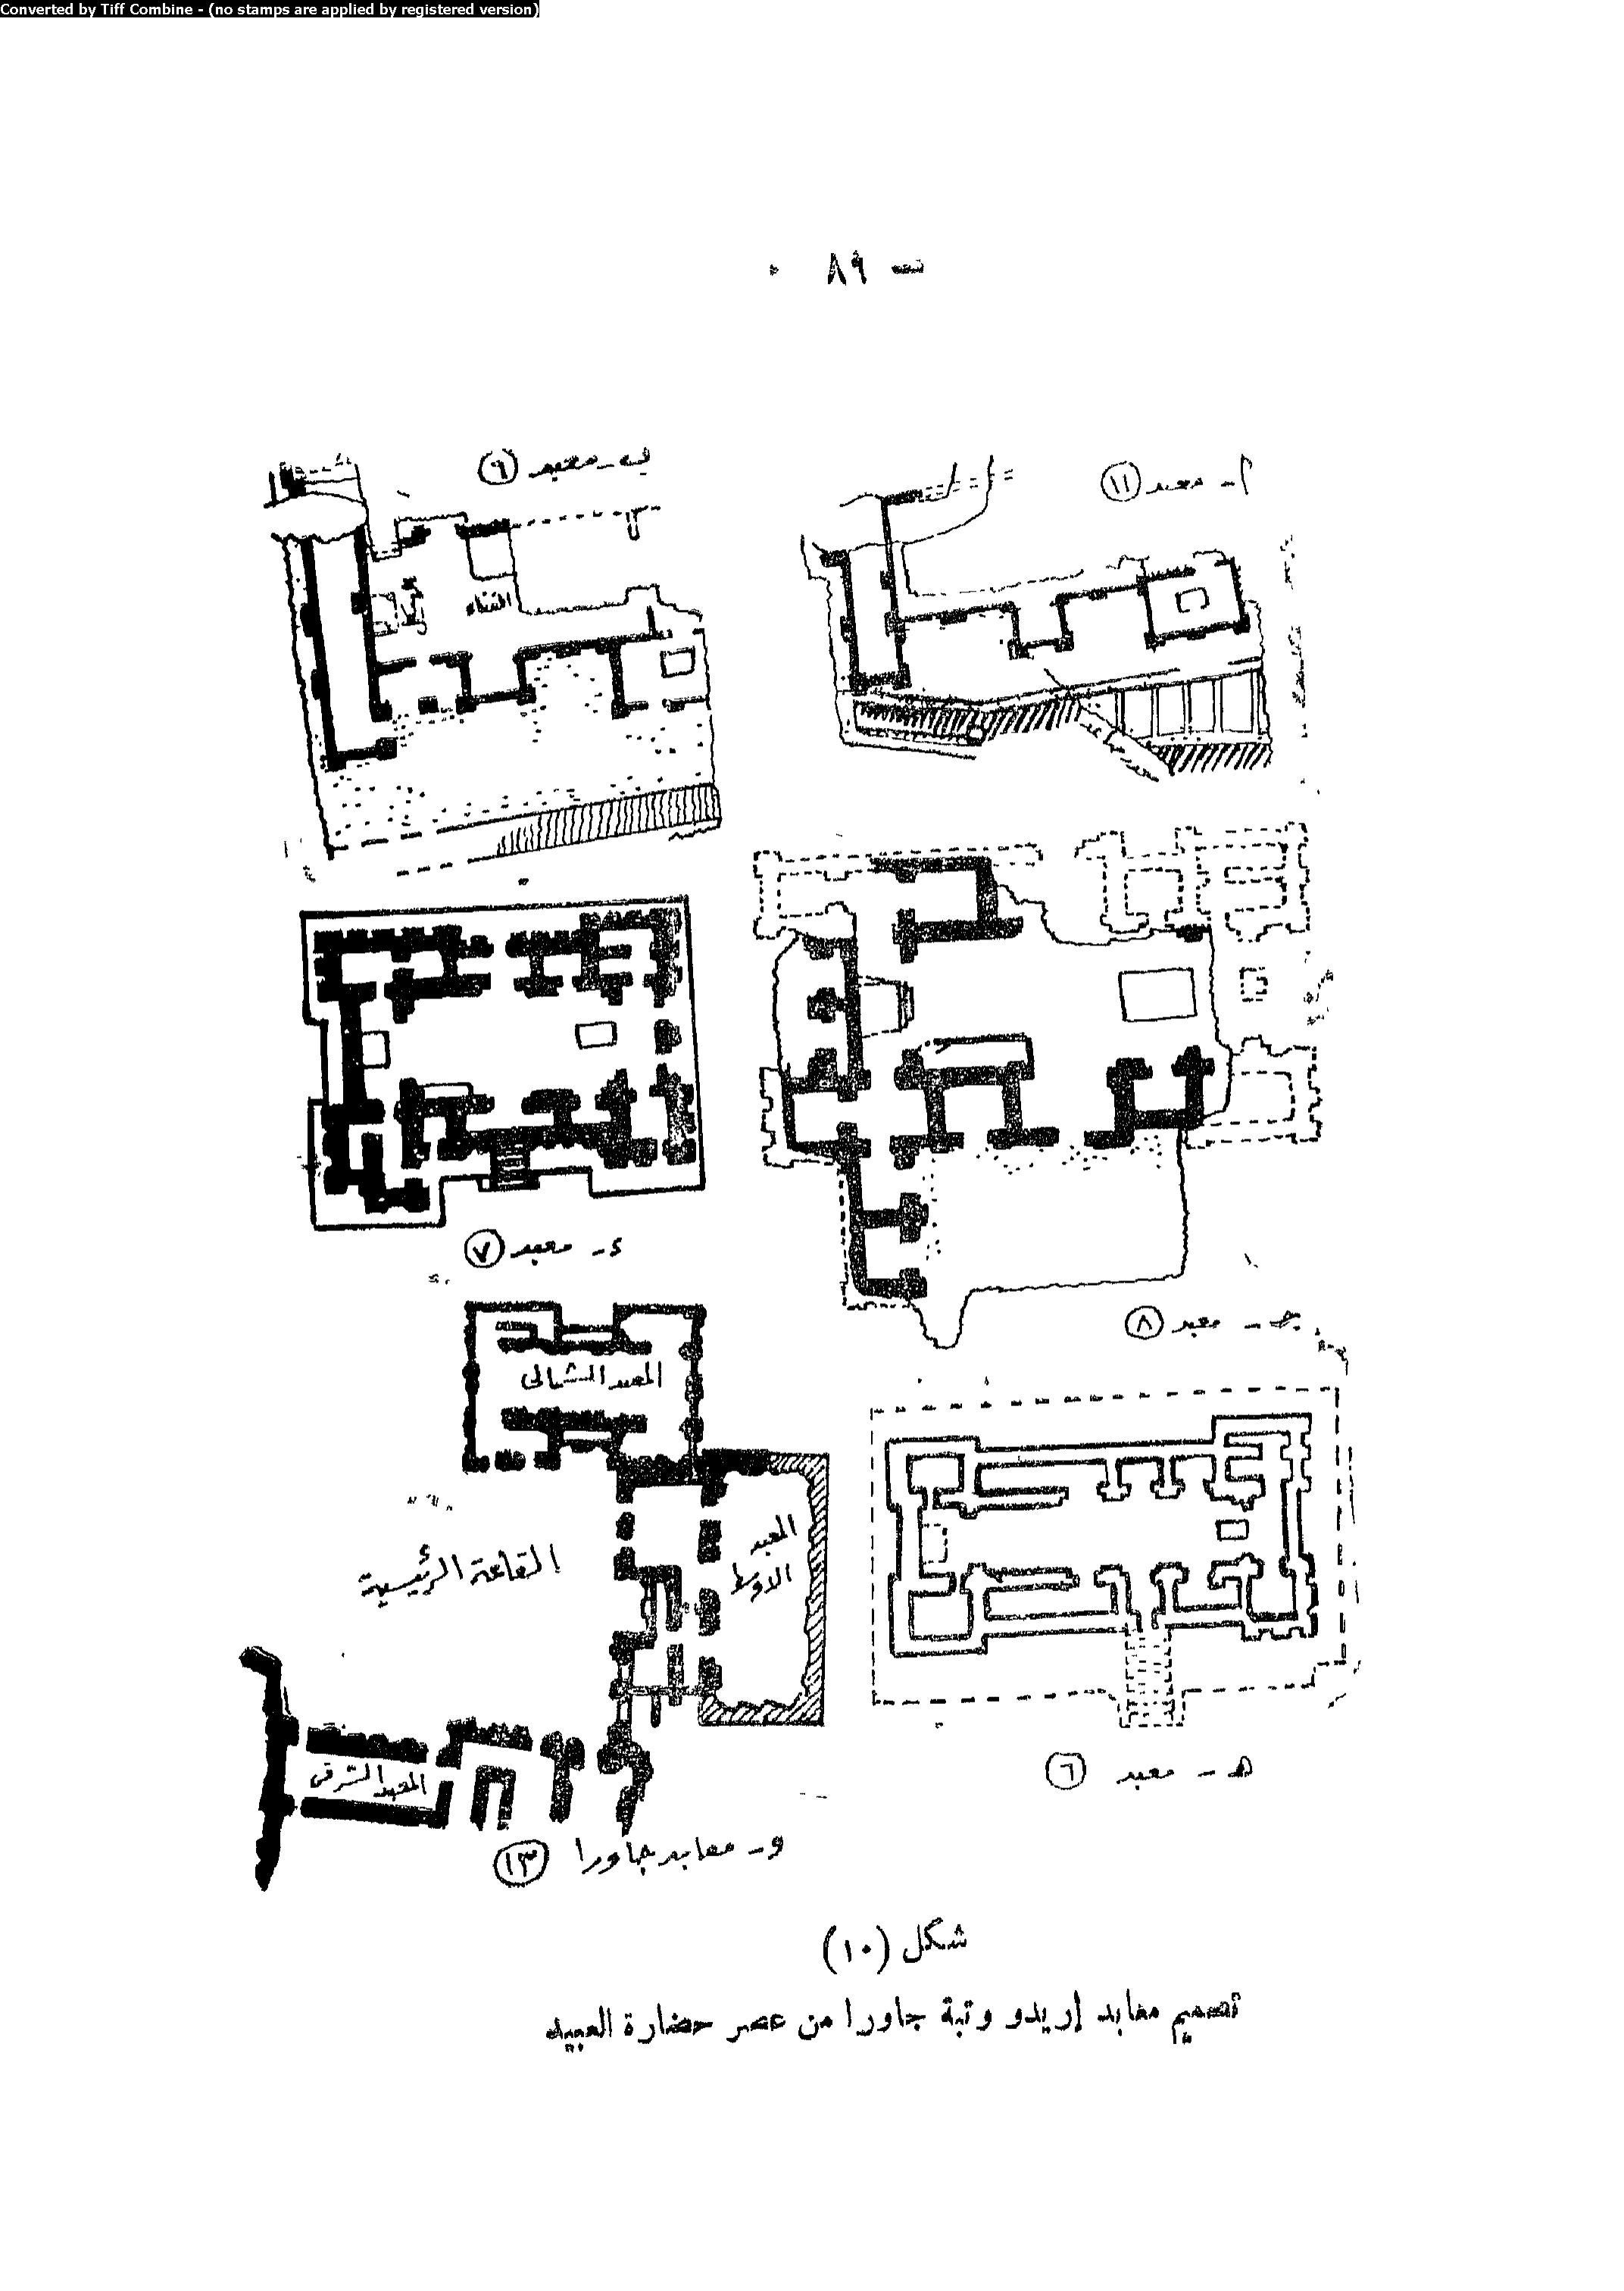 Converted by Tiff Combine - (no stamps are applied by registered version)
٨٩ -
أ - معبد ١١
ب - معبد ٩
الفناء
جـ - معبد ٨
د - معبد ٧
المعبد الشمالى
المعبد
الاوسط
القاعة الرئيسية
المعبد الشرقى
هـ - معبد ٦
و - معابد جاورا ١٣
شكل (١٠)
تصميم معابد إريدو وتبة جاورا من عصر حضارة العبيد